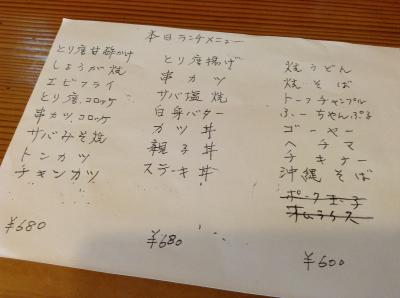 本日ランチメニュー
とり唐甘酢がけ
しょうが焼
エビフライ
とり唐.コロッケ
串カツ.コロッケ
サバみそ焼
トンカツ
チキンカツ
¥680
とり唐揚げ
串カツ
サバ塩焼
白身バター
カツ丼
親子丼
ステーキ丼
¥680
焼うどん
焼そば
トーフチャンプル
ふーちゃんぷる
ゴーヤー
ヘチマ
チキナー
沖縄そば
ポーク玉子
オムライス
¥600